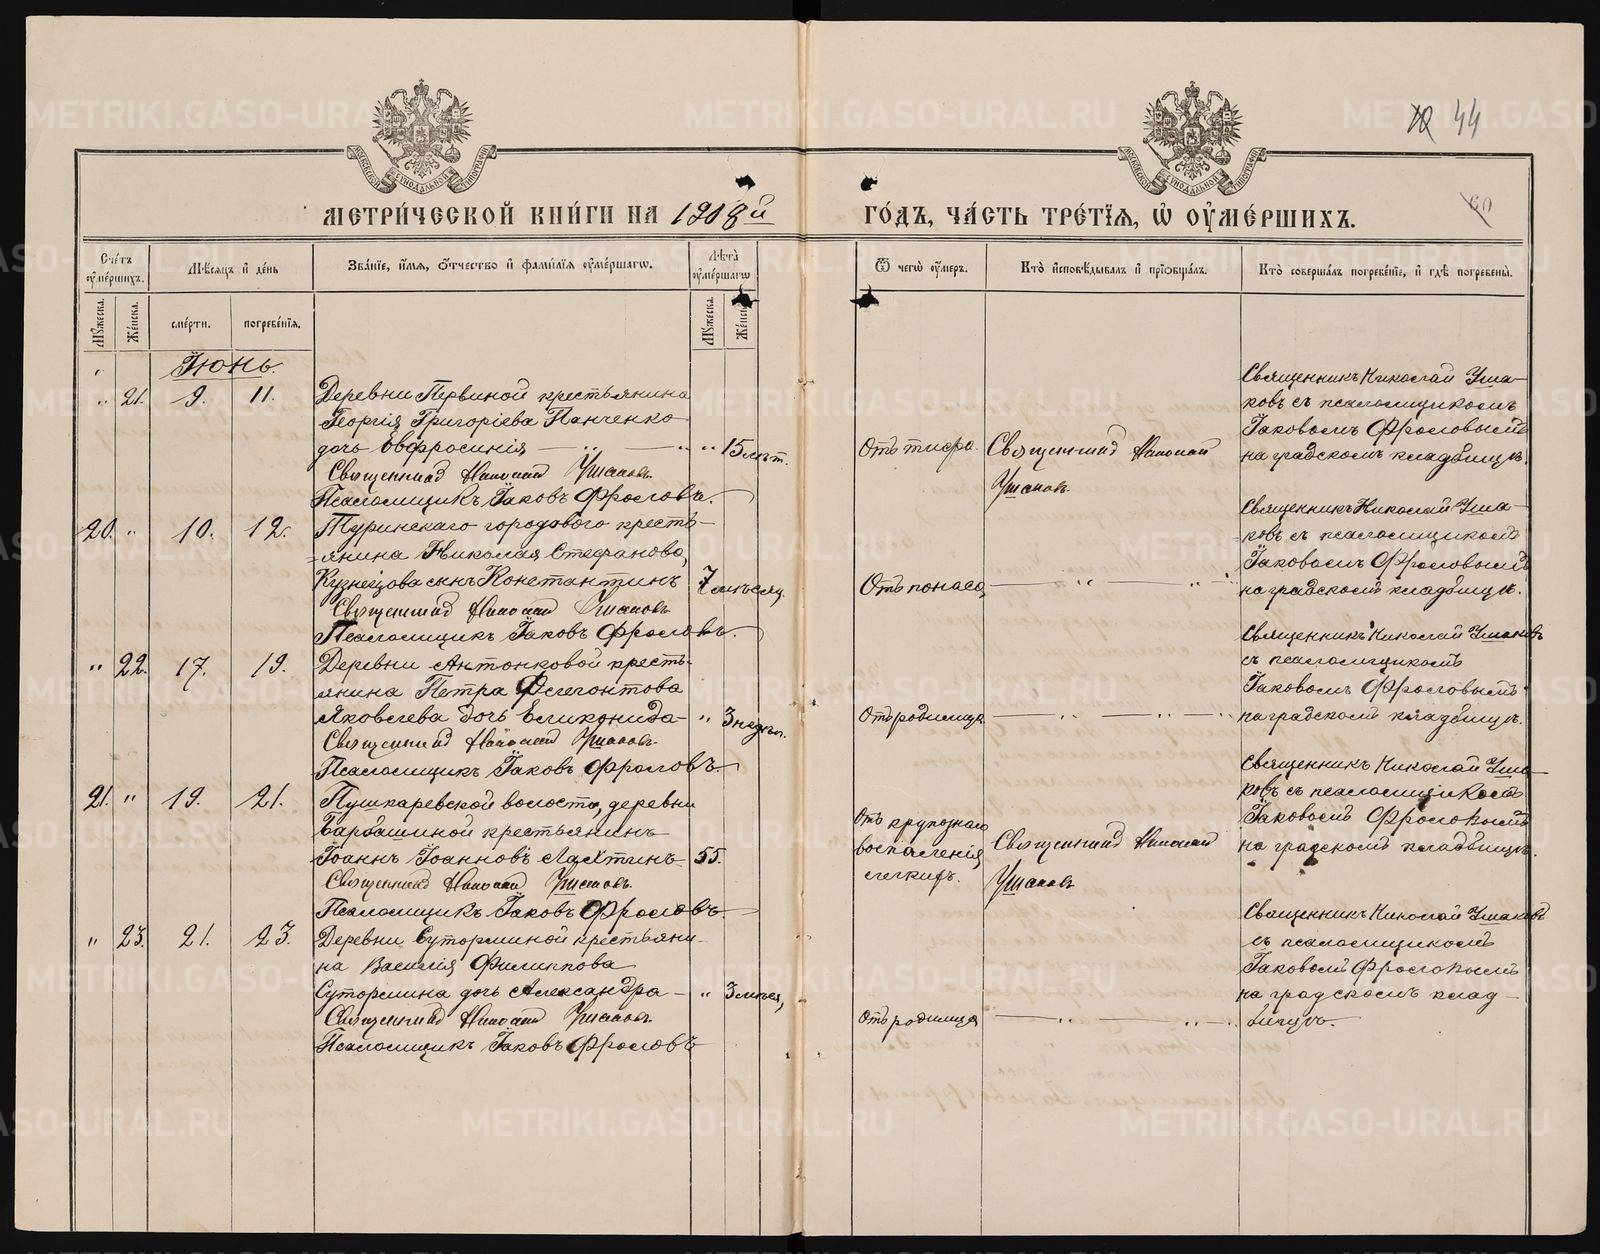 44
60
МЕТРИ́ЧЕСКОЙ КНИ́ГИ НА 1908й
ГО́ДЪ, ЧА́СТЬ ТРЕ́ТЇѦ, Ѡ҆ ОУ҆МЕ́РШИХЪ.
Сче́тъ оу҆ме́ршихъ.
Мѣ́сяцъ и҆ де́нь
Зва́нїе, и҆́мя, ѻ҆́тчество и҆ фами́лїя оу҆ме́ршагѡ.
Лѣ́та оу҆ме́ршагѡ
Ѿ чегѡ̀ оу҆́меръ.
Кто̀ и҆сповѣ́дывалъ и҆ прїѡбща́лъ.
Кто̀ соверша́лъ погребе́нїе, и҆ гдѣ̀ погребены̀.
Мꙋ́жеска.
Же́нска.
сме́рти.
погребе́нїя.
Мꙋ́жеска.
Же́нска.
Іюнь.
„ 21. 9. 11.
Деревни Первиной крестьянина
Георгія Григоріева Панченко
дочь Евфросинія — „ — „ „ 15 лѣт.
Священникъ Николай Ушаковъ.
Псаломщикъ Іаковъ Фроловъ.
Отъ тифа.
Священникъ Николай
Ушаковъ.
Священникъ Николай Уша-
ковъ съ псаломщикомъ
Іаковомъ Фроловымъ
на градскомъ кладбищѣ.
20. „ 10. 12.
Туринскаго городового кресть-
янина Николая Стефанова
Кузнецова сынъ Константинъ 7 мѣсяц.
Священникъ Николай Ушаковъ
Псаломщикъ Іаковъ Фроловъ.
Отъ поноса, — „ — „
Священникъ Николай Уша-
ковъ съ псаломщикомъ
Іаковомъ Фроловымъ
на градскомъ кладбищѣ.
„ 22. 17. 19.
Деревни Антонковой кресть-
янина Петра Флегонтова
Яковлева дочь Еликонида- „ 3 недѣл.
Священникъ Николай Ушаковъ.
Псаломщикъ Іаковъ Фроловъ.
Отъ родимца. — „ — „ — „
Священникъ Николай Ушаковъ
съ псаломщикомъ
Іаковомъ Фроловымъ
на градскомъ кладбищѣ.
21. „ 19. 21.
Пушкаревской волости, деревни
Барбашиной крестьянинъ
Іоаннъ Іоанновъ Лахтинъ 55.
Священникъ Николай Ушаковъ.
Псаломщикъ Іаковъ Фроловъ.
Отъ крупознаго
воспаленія
легкихъ.
Священникъ Николай
Ушаковъ
Священникъ Николай Уша-
ковъ съ псаломщикомъ
Іаковомъ Фроловымъ
на градскомъ кладбищѣ.
„ 23. 21. 23.
Деревни Сутоминой крестьяни-
на Василія Филиппова
Сутормина дочь Александра — „ 3 мѣся,
Священникъ Николай Ушаковъ.
Псаломщикъ Іаковъ Фроловъ
Отъ родимца — „ — „
Священникъ Николай Ушаковъ
съ псаломщикомъ
Іаковомъ Фроловымъ
на градскомъ клад-
бищѣ.